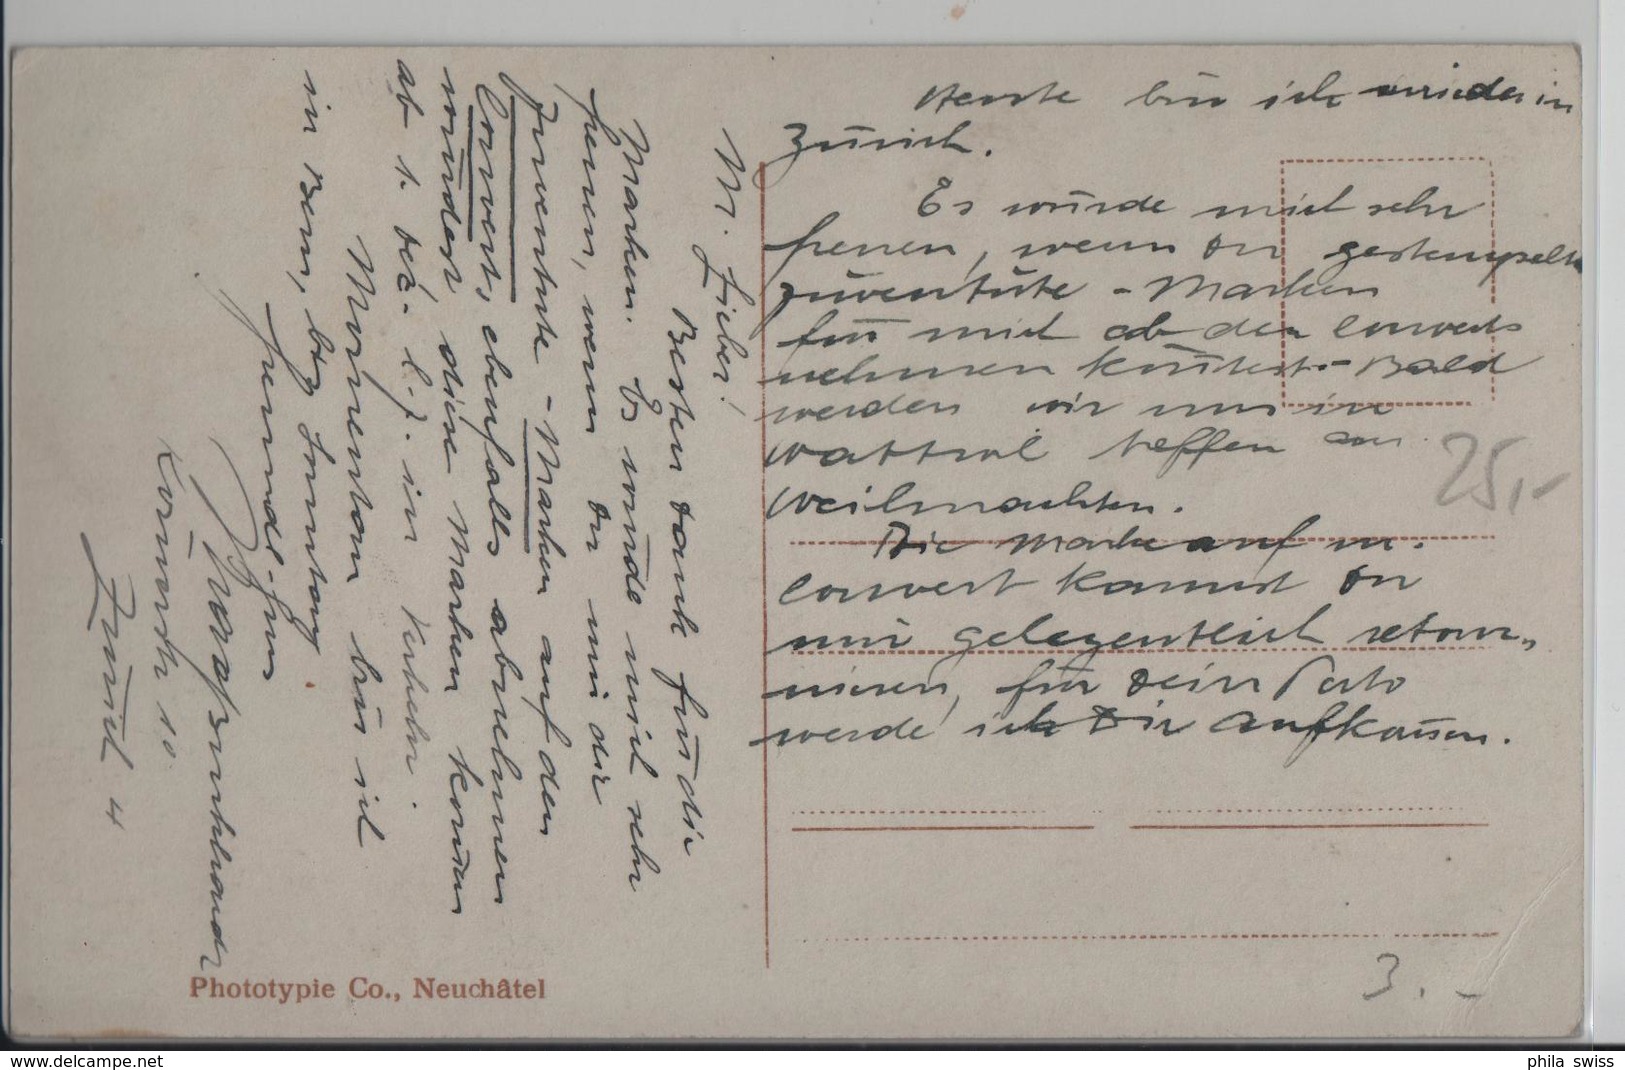 M. Lieber!
Besten Dank für die
Marken. Es würde mich sehr
freuen, wenn Du mir die
Juventute-Marken auf den
Couverts, ebenfalls abnehmen
würdest diese Marken
ab 1. Dez. l. J. in Verkehr
Momentan bin ich
in Bern, bis Sonntag.
Zürich 4
Heute bin ich wieder in
Zürich.
Es würde mich sehr
freuen, wenn Du gestempelte
Juventute-Marken
für mich ab den Couverts
nehmen könntest.- Bald
werden wir uns in
Wattwil treffen an
Weihnachten.
Die Marke auf m.
Couvert kannst Du
mir gelegentlich retour-
nieren, für Dein Porto
werde ich Dir aufkommen.
25,-
3.-
Phototypie Co., Neuchâtel
www.delcampe.net
phila swiss